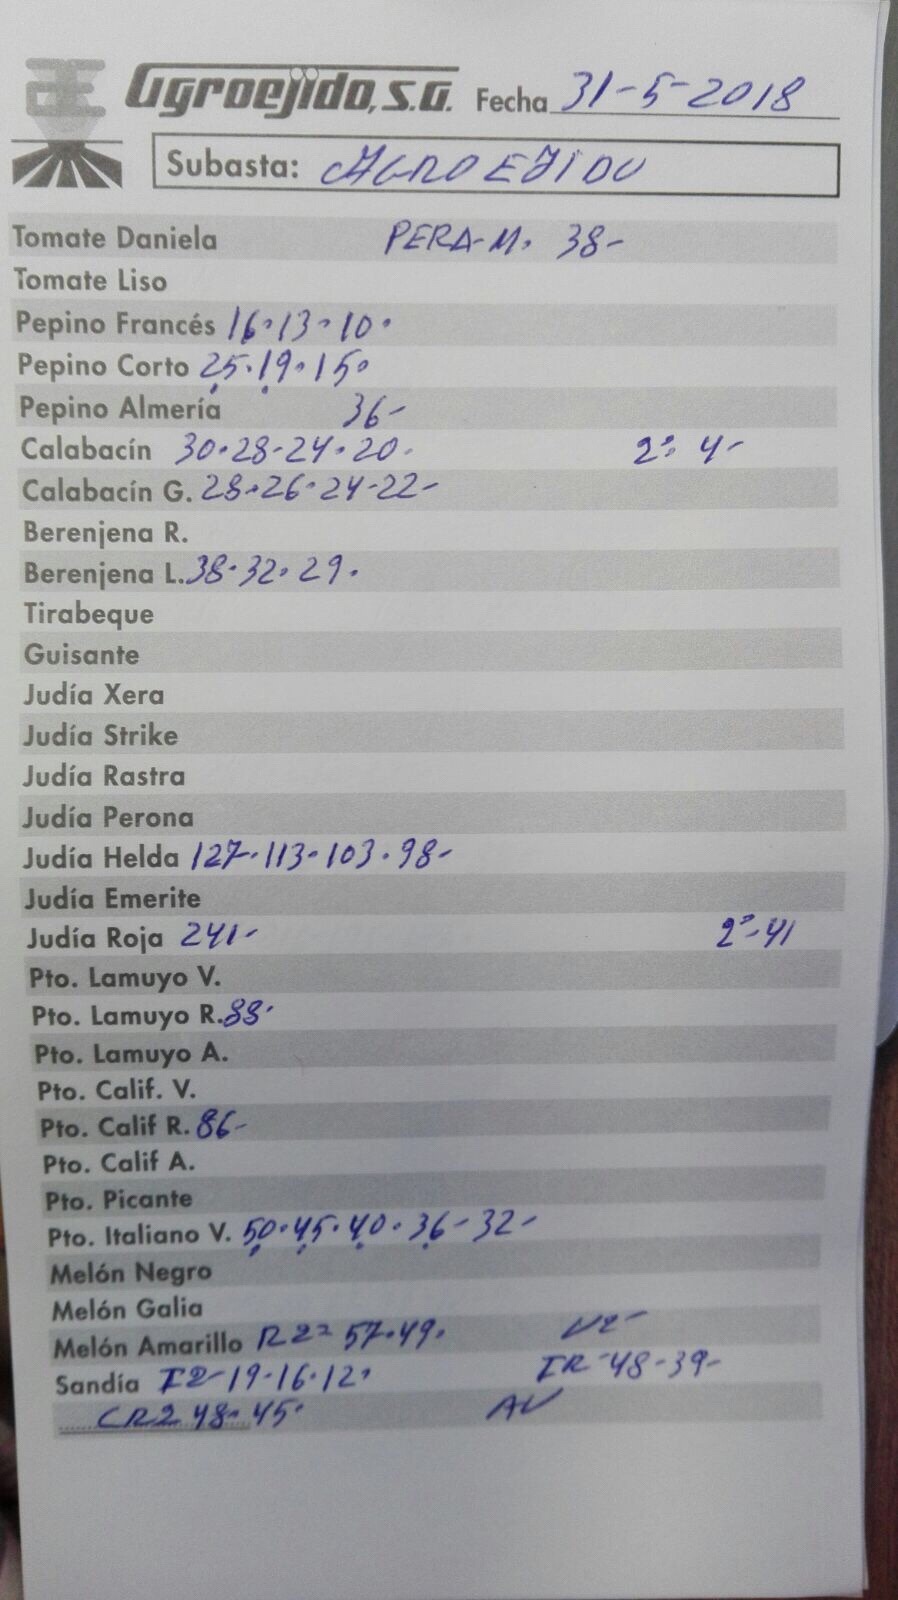 Agroejido, S.A. Fecha 31-5-2018
Subasta: AGROEJIDO
Tomate Daniela PERA-M. 38-
Tomate Liso
Pepino Francés 16·13·10·
Pepino Corto 25·19·15·
Pepino Almería 36-
Calabacín 30·28-24·20· 2ª 4-
Calabacín G. 28·26·24-22-
Berenjena R.
Berenjena L. 38·32·29·
Tirabeque
Guisante
Judía Xera
Judía Strike
Judía Rastra
Judía Perona
Judía Helda 127·113·103·98-
Judía Emerite
Judía Roja 241- 2ª-41
Pto. Lamuyo V.
Pto. Lamuyo R. 88·
Pto. Lamuyo A.
Pto. Calif. V.
Pto. Calif R. 86-
Pto. Calif A.
Pto. Picante
Pto. Italiano V. 50·45·40·36-32-
Melón Negro
Melón Galia
Melón Amarillo 57·49·
Sandía 19·16·12· 48-39-
CR2 48·45· AV